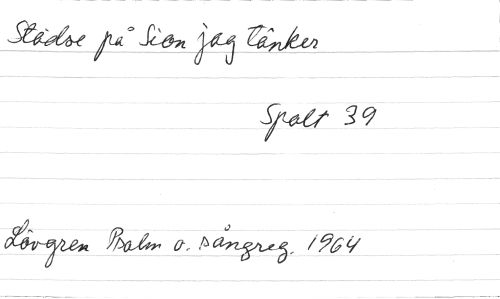 Städse på Sion jag tänker
Spalt 39
Lövgren Psalm o. sångreg. 1964